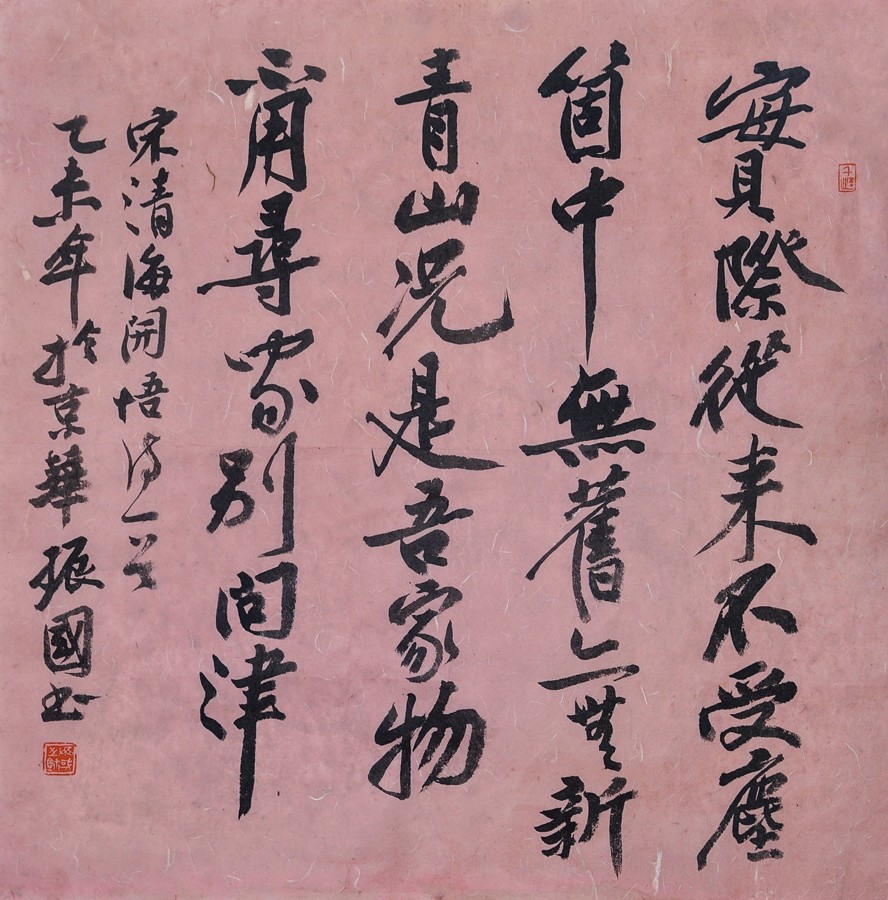 實際從來不受塵
箇中無舊亦無新
青山況是吾家物
不用尋家別問津
宋清海開悟诗一首
乙未年於京華振國书